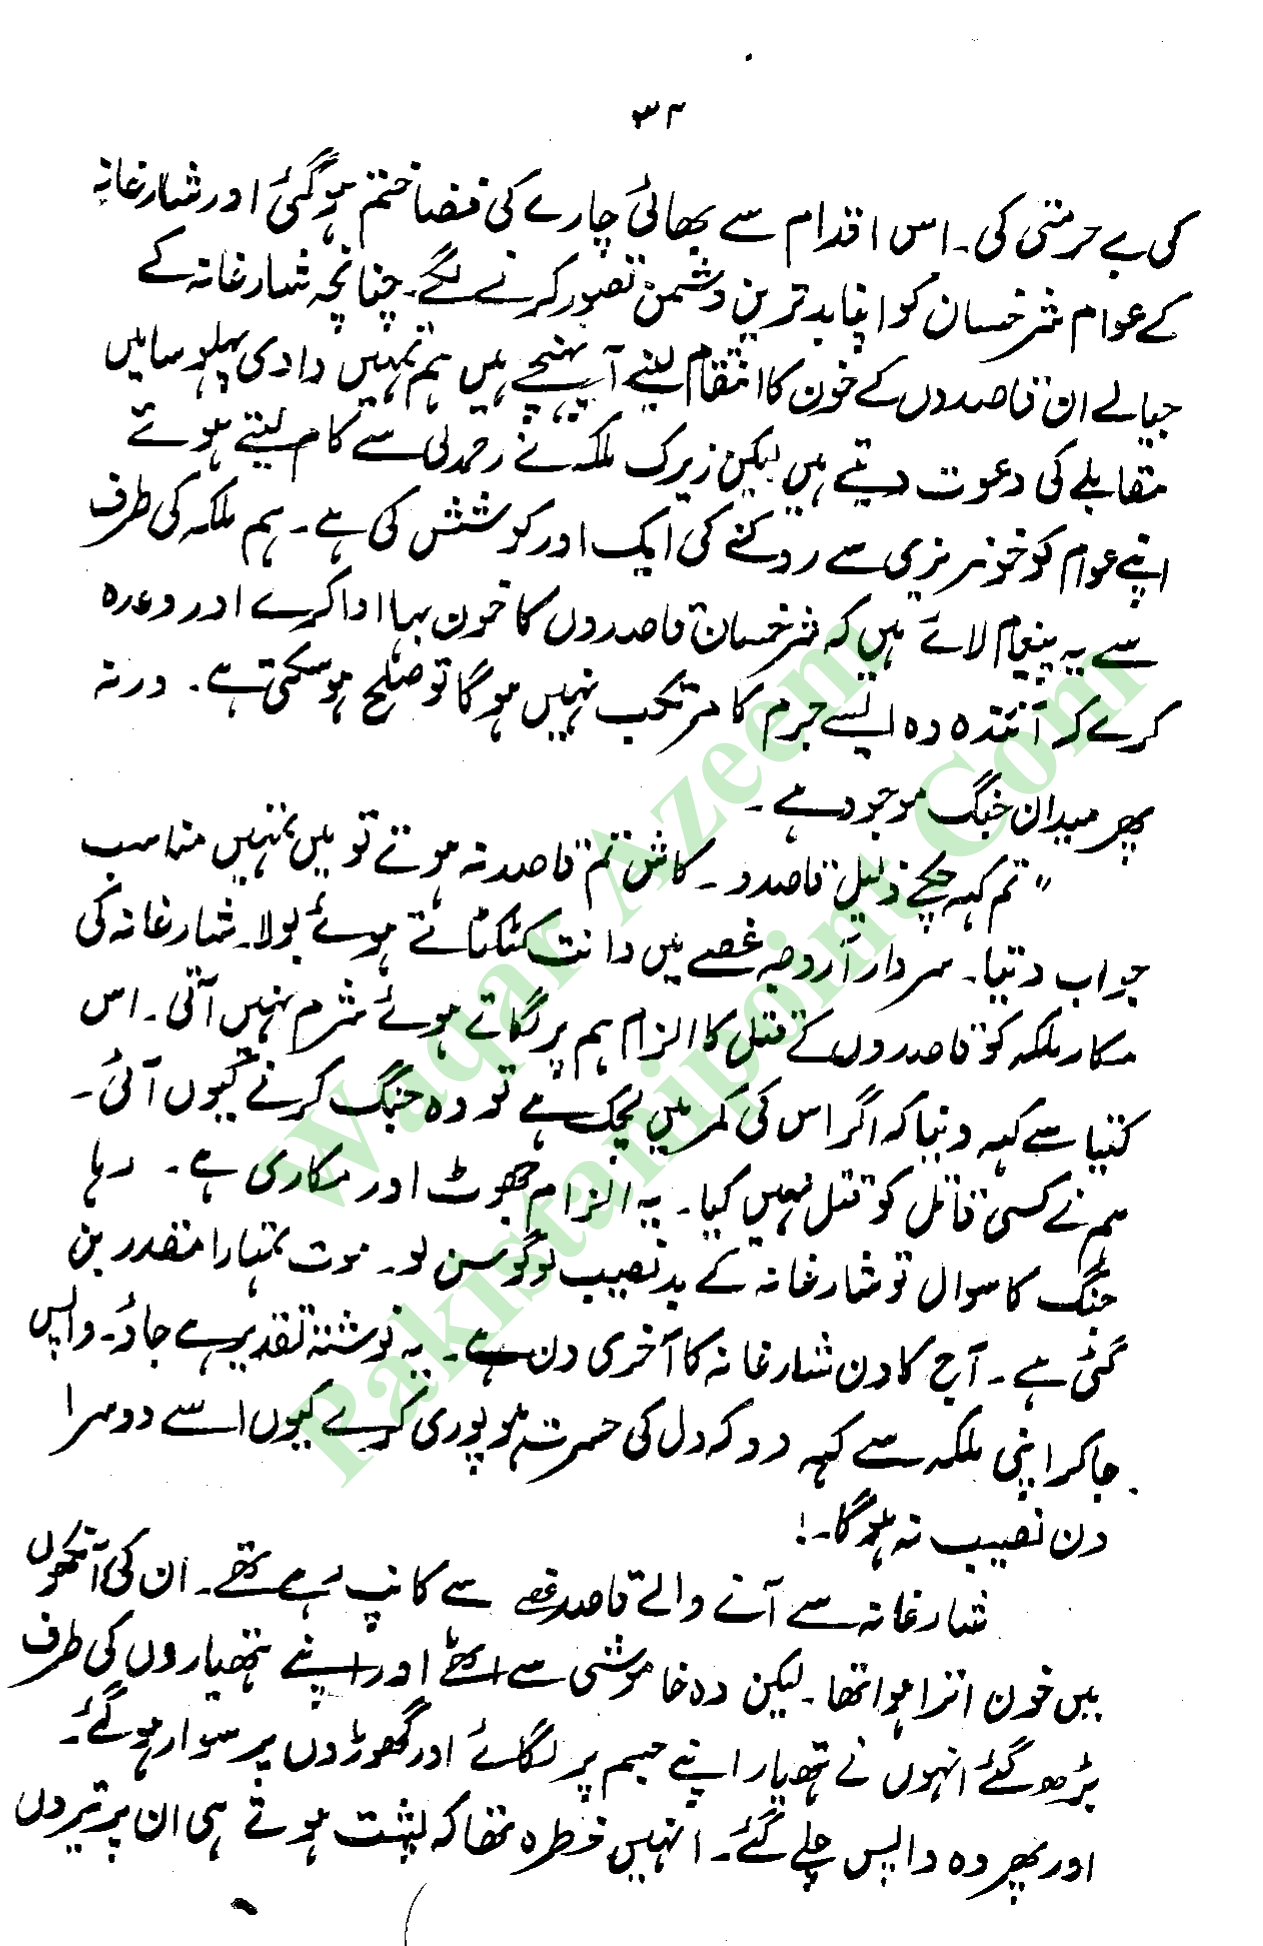 ۳۴
کی بے حرمتی کی۔ اس اقدام سے بھائی چارے کی فضا ختم ہوگئی اور شارغانہ
کے عوام شرخسان کو اپنا بدترین دشمن تصور کرنے لگے۔ چنانچہ شارغانہ کے
جیالے ان قاصدوں کے خون کا انتقام لینے آپہنچے ہیں ہم تمہیں وادی پہلو سا میں
مقابلے کی دعوت دیتے ہیں لیکن زیرک ملکہ نے رحمدلی سے کام لیتے ہوئے
اپنے عوام کو خونریزی سے روکنے کی ایک اور کوشش کی ہے۔ ہم ملکہ کی طرف
سے یہ پیغام لائے ہیں کہ شرخسان قاصدوں کا خون بہا ادا کرے اور وعدہ
کرے کہ آئندہ وہ ایسے جرم کا مرتکب نہیں ہوگا تو صلح ہوسکتی ہے۔ ورنہ
پھر میدان جنگ موجود ہے۔
"تم کہہ چکے ذلیل قاصدو۔ کاش تم قاصد نہ ہوتے تو میں تمہیں مناسب
جواب دیتا۔ سردار آروجہ غصے میں دانت کٹکٹاتے ہوئے بولا۔ شارغانہ کی
مکار ملکہ کو قاصدوں کے قتل کا الزام ہم پر لگاتے ہوئے شرم نہیں آتی۔ اس
کتیا سے کہہ دینا کہ اگر اس کی کمر میں لچک ہے تو وہ جنگ کرنے کیوں آئی۔
ہم نے کسی قاتل کو قتل نہیں کیا۔ یہ الزام جھوٹ اور مکاری ہے۔ رہا
جنگ کا سوال تو شارغانہ کے بدنصیب لوگو سن لو۔ موت تمہارا مقدر بن
گئی ہے۔ آج کا دن شارغانہ کا آخری دن ہے۔ یہ نوشتۂ تقدیر ہے جاؤ۔ واپس
جاکر اپنی ملکہ سے کہہ دو کہ دل کی حسرت ہو پوری کرے کیوں اسے دوسرا
دن نصیب نہ ہوگا۔!
شارغانہ سے آنے والے قاصد غصے سے کانپ رہے تھے۔ ان کی آنکھوں
میں خون اترا ہوا تھا۔ لیکن وہ خاموشی سے اٹھے اور اپنے ہتھیاروں کی طرف
بڑھ گئے انہوں نے ہتھیار اپنے جسم پر لگائے اور گھوڑوں پر سوار ہوگئے۔
اور پھر وہ واپس چلے گئے۔ انہیں خطرہ تھا کہ پشت ہوتے ہی ان پر تیروں
Waqar Azeem
Pakistanipoint Com